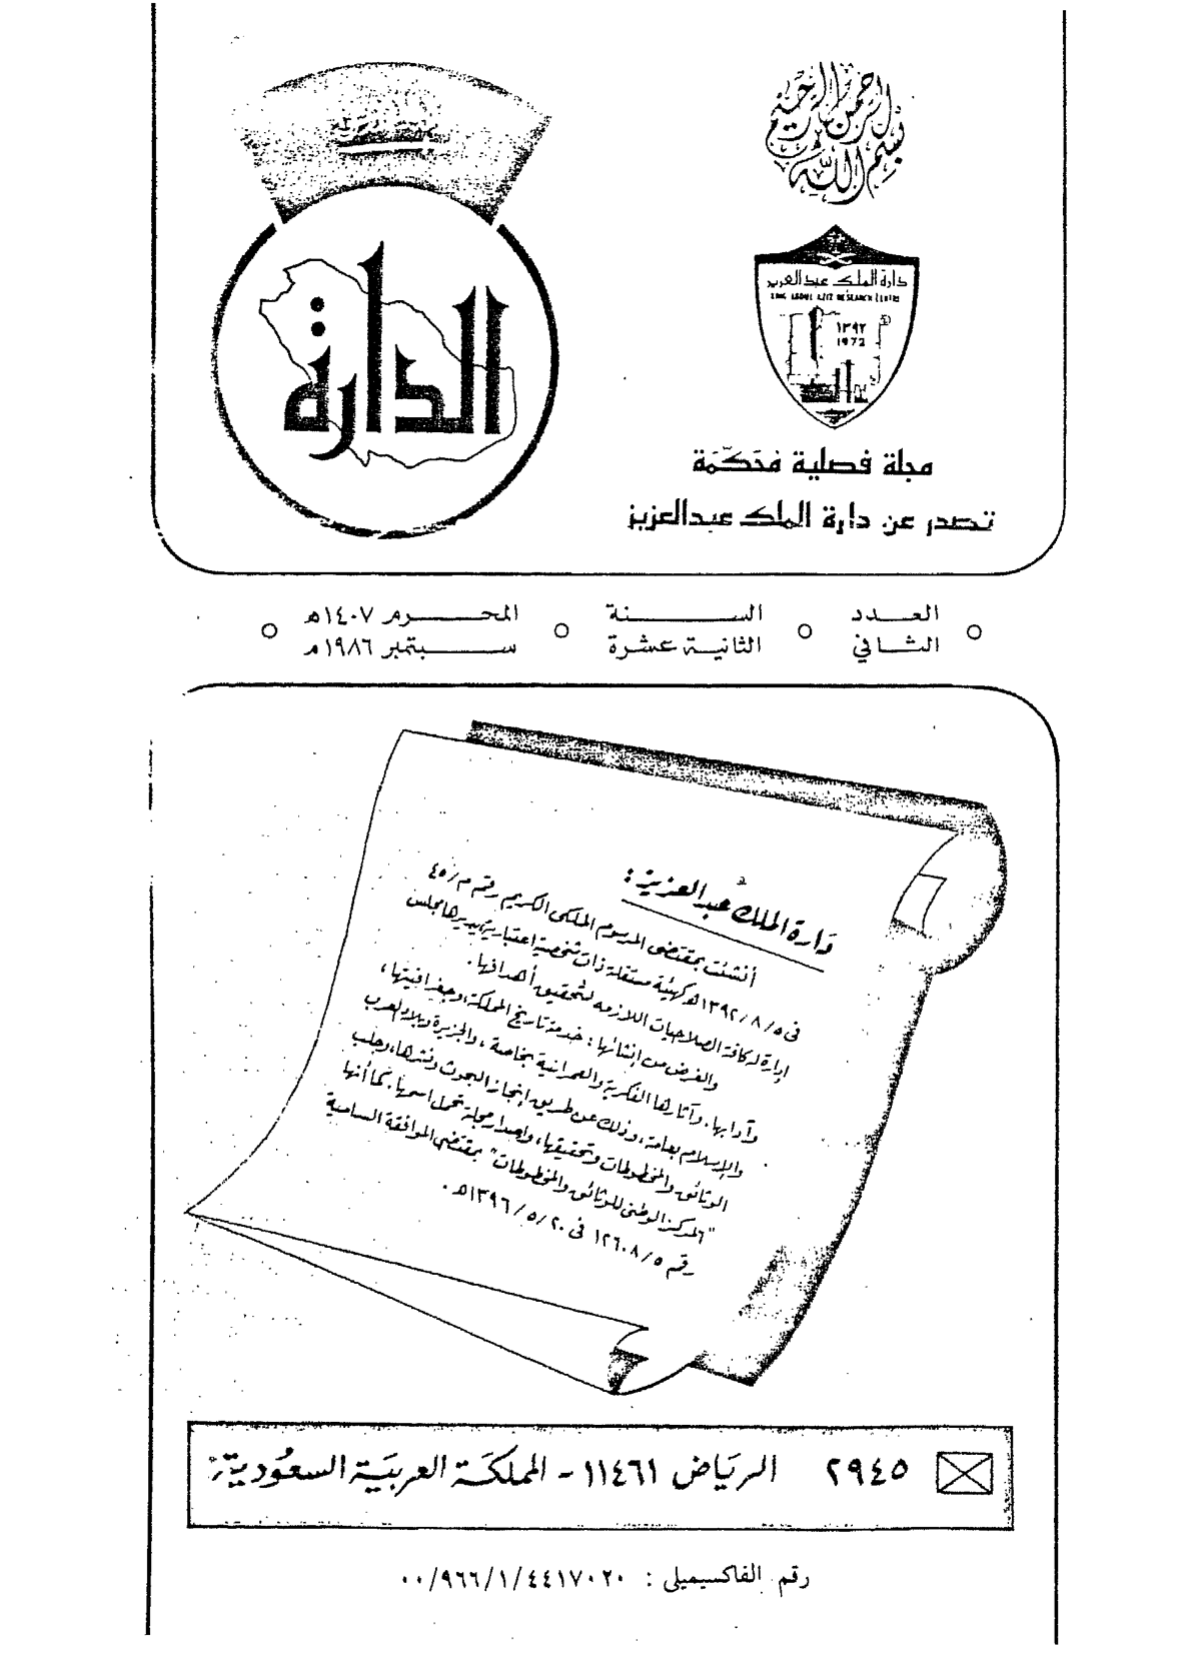 بسم الله الرحمن الرحيم
الدارة
دارة الملك عبدالعزيز
KING ABDUL AZIZ RESEARCH CENTRE
١٣٩٢
1972
مجلة فصلية مُحَكَّمَة
تصدر عن دارة الملك عبدالعزيز
العدد الثاني
السنة الثانية عشرة
المحرم ١٤٠٧هـ
سبتمبر ١٩٨٦م
دَارة الملك عبد العزيز :
أنشئت بمقتضى المرسوم الملكى الكريم رقم م/٤٥
فى ١٣٩٢/٨/٥هـ كهيئة مستقلة ذات شخصية اعتبارية، يديرها مجلس
إدارة له كافة الصلاحيات اللازمة لتحقيق أهدافها .
والغرض من إنشائها : خدمة تاريخ المملكة، وجغرافيتها ،
وآدابها، وآثارها الفكرية والعمرانية بخاصة ، والجزيرة وبلاد العرب
والإسلام بعامة ، وذلك عن طريق إنجاز البحوث ونشرها، وجلب
الوثائق والمخطوطات وتحقيقها، وإصدار مجلة تحمل اسمها. كما أنها
"المركز الوطنى للوثائق والمخطوطات" بمقتضى الموافقة السامية
رقم ١٢٦٠٨/٥ فى ١٣٩٦/٥/٢٠هـ .
٢٩٤٥ الريَاض ١١٤٦١ - المملكَة العربيَة السعُودية
رقم الفاكسيميلى : ٠٠/٩٦٦/١/٤٤١٧٠٢٠